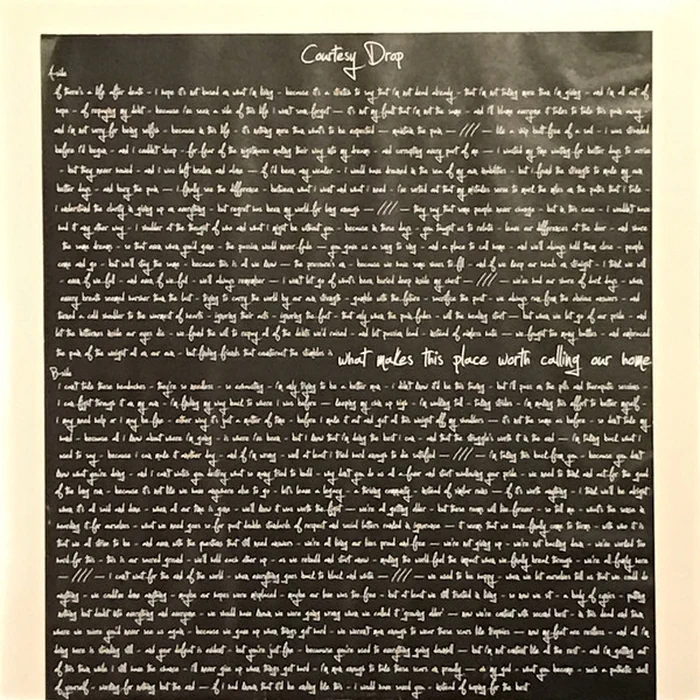 Courtesy Drop
A-side
if there's a life after death - i hope it's not based on what i'm living - because it's a stretch to say that i'm not dead already - that i'm not taking more than i'm giving - and i'm all out of
hope - of repaying my debt - because i've seen a side of this life i won't soon forget - it's not my fault that i'm not the same - and i'll blame everyone it takes to take this pain away
and i'm not sorry for being selfish - because in this life - it's nothing more than what's to be expected - maintain the pain - //// - like a ship but free of a sail - i was stranded
before i'd begun - and i couldn't sleep - for fear of the nightmares making their way into my dreams - and corrupting every part of me - i wasted my time waiting for better days to arrive
- but they never showed - and i was left broken and alone - if i'd been any weaker - i would have drowned in the sea of my own inabilities - but i found the strength to make my own
better days - and bury the pain - i finally see the difference - between what i want and what i need - i've sorted out that my mistakes seem to meet the miles on the paths that i take -
i understand the clarity in giving up on everything - but regret has been my world for long enough - //// - they say that some people never change - but in this case - i wouldn't have
had it any other way - i shudder at the thought of who and what i might be without you - because in these days - you taught us to relate - leave our differences at the door - and share
the same dreams - so that even when youth's gone - the passion would never fade - you gave us a way to sing - and a place to call home - and we'll always hold them close - people
come and go - but we'll stay the same - because this is all we know - the pressure's on - because we have some shoes to fill - and if we keep our heads on straight - i think we will
- even if we fail - and even if we fall - we'll always remember - i won't let go of what's been buried deep inside my chest - //// - we've had our share of dark days - when
every breath seemed harder than the last - trying to carry the world by our own strength - gamble with the future - sacrifice the past - we always ran from the obvious answers - and
turned a cold shoulder to the warmest of hearts - ignoring their acts - ignoring the fact - that only when the pain fades - will the healing start - but when we let go of our pride - and
let the bitterness inside our eyes die - we found the will to repay all of the debts we'd raised - and let passion lead - instead of useless hate - we fought too many battles - and embraced
the pain of the weight all on our own - but finding friends that counteract the struggles is what makes this place worth calling our home
B-side
i can't take these headaches - they're so needless - so exhausting - i'm only trying to be a better man - i didn't know it'd be this taxing - but i'll pass on the pills and therapeutic sessions -
i can fight through it on my own - i'm finding my way back to where i was before - keeping my chin up high - i'm walking tall - taking strides - i'm making this effort to better myself -
i may need help or i may be fine - either way it's just a matter of time - before i make it out and get all of this weight off my shoulders - it's not the same as before - so don't take my
word - because all i know about where i'm going - is where i've been - but i know that i'm doing the best i can - and that the struggle's worth it in the end - i'm taking back what i
used to say - because i can make it another day - and if i'm wrong - well at least i tried hard enough to be satisfied - //// - i'm taking this back from you - because you don't
know what you're doing - and i can't watch you destroy what so many tried to build - why don't you do us all a favor and start swallowing your pride - we need to think and act for the good
of the long run - because it's not like we have anywhere else to go - let's leave a legacy - a thriving community - instead of similar ruins - if it's worth anything - i think we'll be alright
when it's all said and done - when all our time is gone - we'll know it was worth the fight - we're all getting older - but these songs will live forever - so tell me - what's the sense in
hoarding it for ourselves - what we need goes so far past double standards of respect and social letters rooted in ignorance - it seems that we have finally come to terms - with who it is
that we all strive to be - and even with the questions that still need answers - we're all living our lives proud and free - we're not giving up - we're not backing down - we've worked too
hard for this - this is our sacred ground - we'll hold each other up - as we rebuild and start anew - making the world feel the impact when we finally break through - we're all finally here
- //// - i can't wait for the end of the world - when everything goes back to black and white - //// - we used to be happy - when we let ourselves tell us that we could do
anything - we could've done anything - maybe our hopes were misplaced - maybe our love was too free - but at least we still trusted in living - so now we sit - a body of cynics - putting
nothing but doubt into everything and everyone - we should have known we were going wrong when we called it 'growing older' - and now we're content with second best - in this dead end town
where we swore you'd never see us again - because we gave up when things got hard - we weren't man enough to wear these scars like trophies - now my feet are restless - and all i'm
doing here is standing still - and your defeat is evident - but you're just fine - because you're used to everything going downhill - but i'm not content like all the rest - and i'm getting out
of this town while i still have the chance - i'll never give up when things get hard - i'm man enough to take these scars on proudly - oh my god - what you've become - such a pathetic shell
of yourself - waiting for nothing but the end - if i had known that it'd be ending like this - i would have saved you - instead of hoping for the best